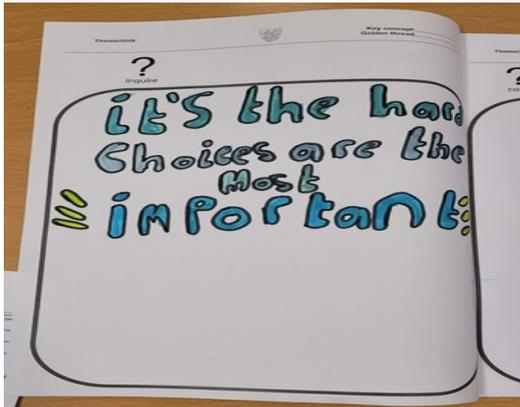 Theme/Unit:
Key concept:
Golden thread:
?
inquire
it's the hard
Choices are the
Most
important
?